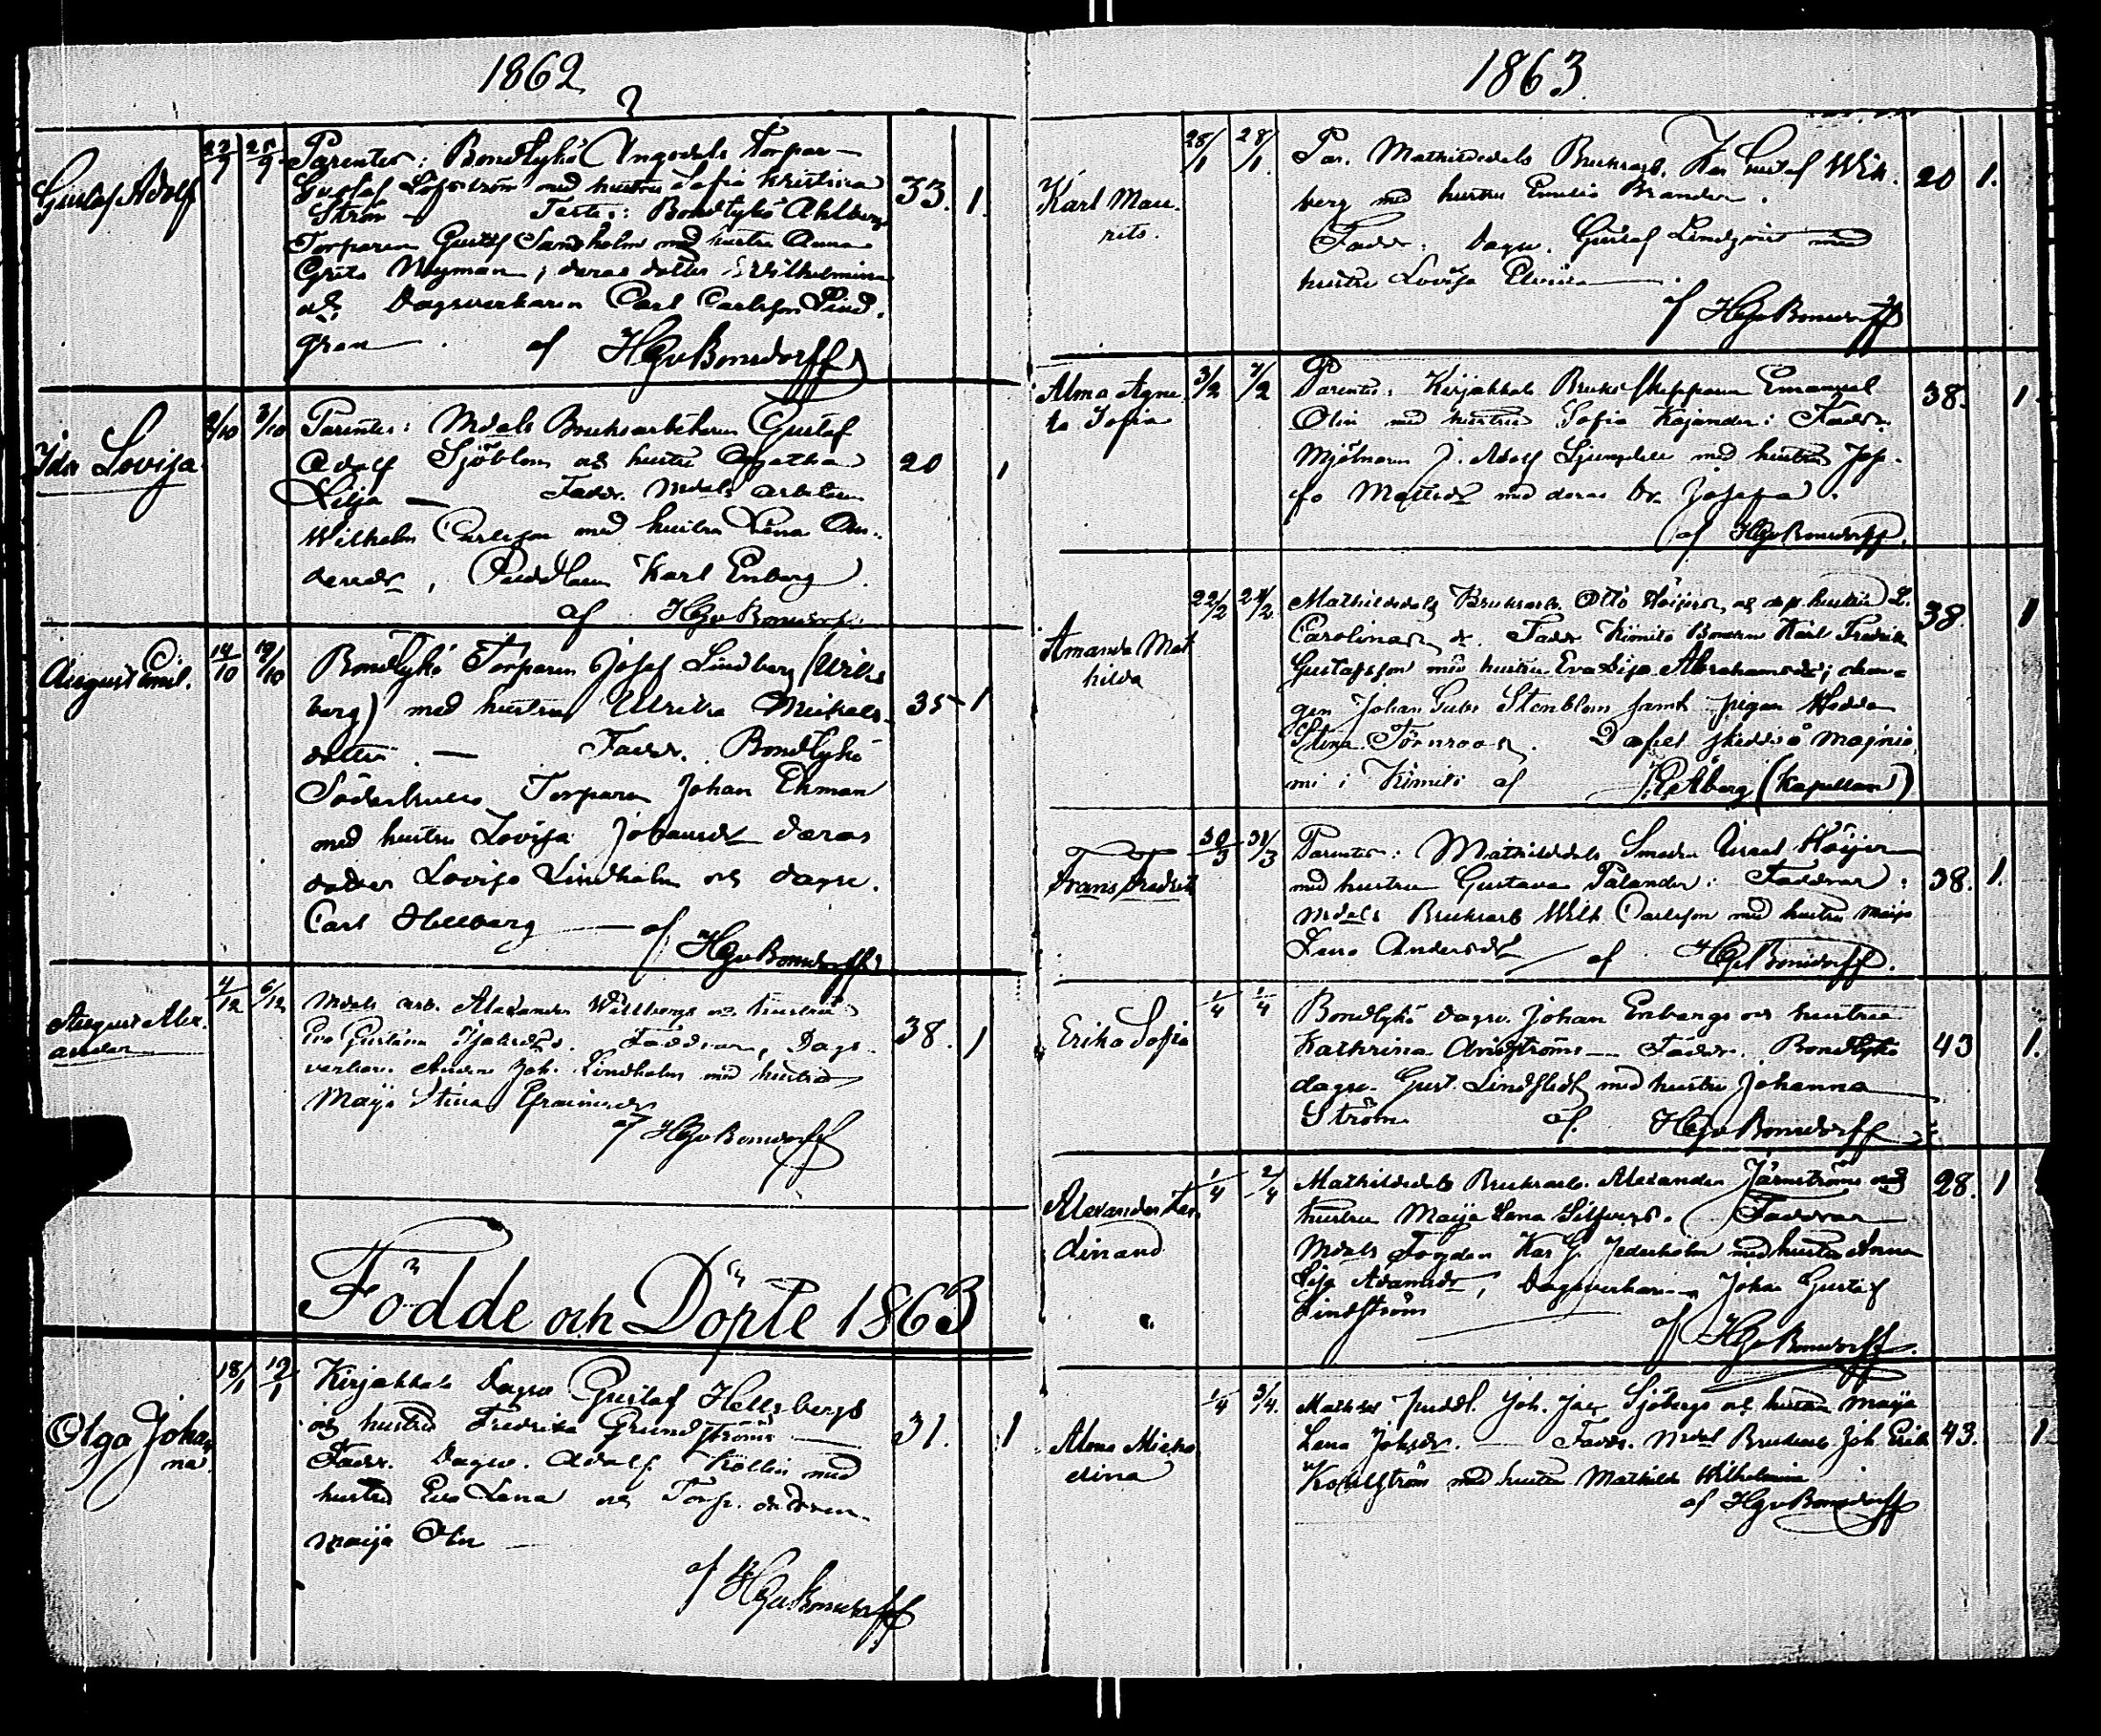 1862
Gustaf Adolf
22/9 25/9
Parentes: Bondkykö Ängsdals Torpar-
Gustaf Löfström med hustru Sofia Kristina
Ström — Testes: Bondkykö Ahlbergs
Torparen Gustaf Sandholm med hustru Anna
Greta Nyman, deras dotter Wilhelmina
och Dagsverkaren Carl Carlsson Lind-
gren — af HGvBonsdorff
33. 1.
Ida Lovisa
2/10 3/10
Parentes: Mdals Bruksarbetaren Gustaf
Adolf Sjöblom och hustru Agatha
Lilja — Faddr. Mdals arbetaren
Wilhelm Carlsson med hustru Lena An-
dersdr, Puddlaren Karl Enberg.
af HGvBonsdorff
20 1
August Emil.
14/10 19/10
Bondkykö Torparen Josef Lindberg (Wiks
berg) med hustru Ulrika Mickels-
dotter. — Faddr. Bondkykö
Södertorp Torparen Johan Ekman
med hustru Lovisa Johansdr deras
dotter Lovisa Lindholm och dagsv.
Carl Hellberg — af HGvBonsdorff
35 1
August Alex-
ander
4/12 6/12
Mdals arb. Alexander Wallbergs och hustrus
Eva Gustava Isaksdrs. Faddrar, Dags-
verkare Anders Joh. Lindholm med hustru
Maija Stina Efraimsdr
af HGvBonsdorff
38. 1
Födde och Döpte 1863
Olga Johan
na.
18/1 19/1
Kirjakkala Dagsv Gustaf Hellsbergs
och hustru Fredrika Grundströms —
Faddr. Dagsv. Adolf Kollin med
hustru Eva Lena och Torp. dottern
Maija Olin —
af HGvBonsdorff
31. 1
1863
Karl Mau-
rits.
28/1 28/1.
Par. Mathildedals Bruksarb. Kar Gustaf Wik-
berg med hustru Emilia Brander.
Faddr: Dagsv. Gustaf Lindqvist med
hustru Lovisa Elvira —
af HGvBonsdorff
20 1.
Alma Agne
ta Sofia
3/2 7/2
Parentes: Kirjakkala Bruks Skepparen Emanuel
Olin med hustru Sofia Kajander: Faddr.
Mjölnaren J. Adolf Ljungdell med hustru Jose-
fa Mattsdr med deras dr Josefa.
af HGvBonsdorff
38. 1.
Amanda Mat
hilda
22/2 24/2
Mathildedals Bruksarb. Otto Höijers och dess hustru L.
Carolina dr. Faddr Kimito Bonden Karl Fredrik
Gustafsson med hustru Eva Lisa Abrahamsdr; dren-
gen Johan Gust Stenblom samt pigan Hedda
Stina Törnroos. Dopet skedde å Majnie
mi i Kimito af J.P. Åberg (Kapellan)
38. 1
Frans Fredrik
30/3 31/3
Parentes: Mathildedals Smeden Israel Höijer
med hustru Gustava Palander: Faddrar:
Mdals Bruksarb Wilh Carlsson med hustru Maija
Lena Andersdr — af HGvBonsdorff.
38. 1.
Erika Sofia
1/4 1/4
Bondkykö dagsv. Johan Enbergs och hustru
Kathrina Arfströms — Faddr. Bondkykö
dagsv. Gust. Lindstedt med hustru Johanna
Ström. af. HGvBonsdorff
43 1.
Alexander Fer-
dinand
1/4 2/4
Mathildedals Bruksarb. Alexander Järnströms och
hustru Maija Lena Silfvers. Faddrar
Mdals Fogden Kar G. Cederholm med hustru Anna
Lisa Adamsdr, Dagsverkaren Johan Gustaf
Lindström — af HGvBonsdorff.
28. 1
Alma Micho
elina
1/4 3/4.
Mathdal Puddl. Joh. Jac Sjöbergs och hustru Maija
Lena Johsdr. — Faddr. Mdal Bruksarb. Joh Erik
Kohlström med hustru Mathilda Wilhelmina
af HGvBonsdorff
43. 1.